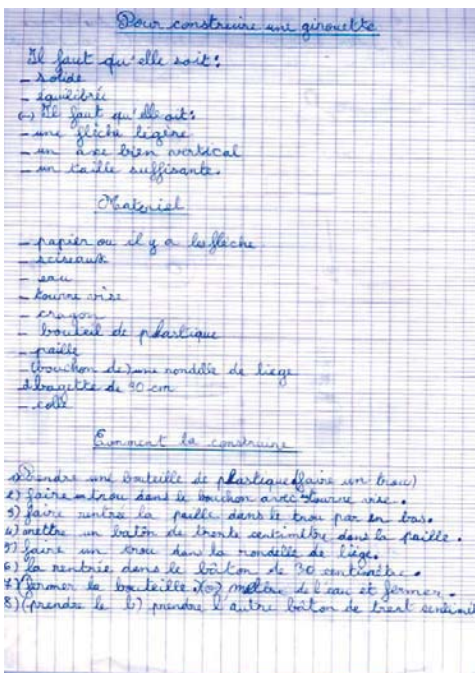 Pour construire une girouette
Il faut qu'elle soit:
- solide
- équilibrée
(-) Il faut qu'elle ait:
- une flèche légère
- un axe bien vertical
- un taille suffisante.
Materiel
- papier ou il y a la flèche
- sciseaux
- eau
- tourne vise
- crayon
- bouteil de plastique
- paille
- (bouchon de) une rondelle de liege
2 bagette de 30 cm
- colle
Comment la construire
1) Prendre une bouteille de plastique (faire un trou)
2) faire un trou dans le bouchon avec tourne vise.
3) faire rentrée la paille dans le trou par en bas.
4) mettre un batôn de trente centimètre dans la paille.
5) faire un trou dans la rondelle de liège.
6) la rentrée dans le bâton de 30 centimètre.
7) fermer la bouteille mettre de l'eau et fermer.
8) (prendre le b) prendre l'autre bâton de trent